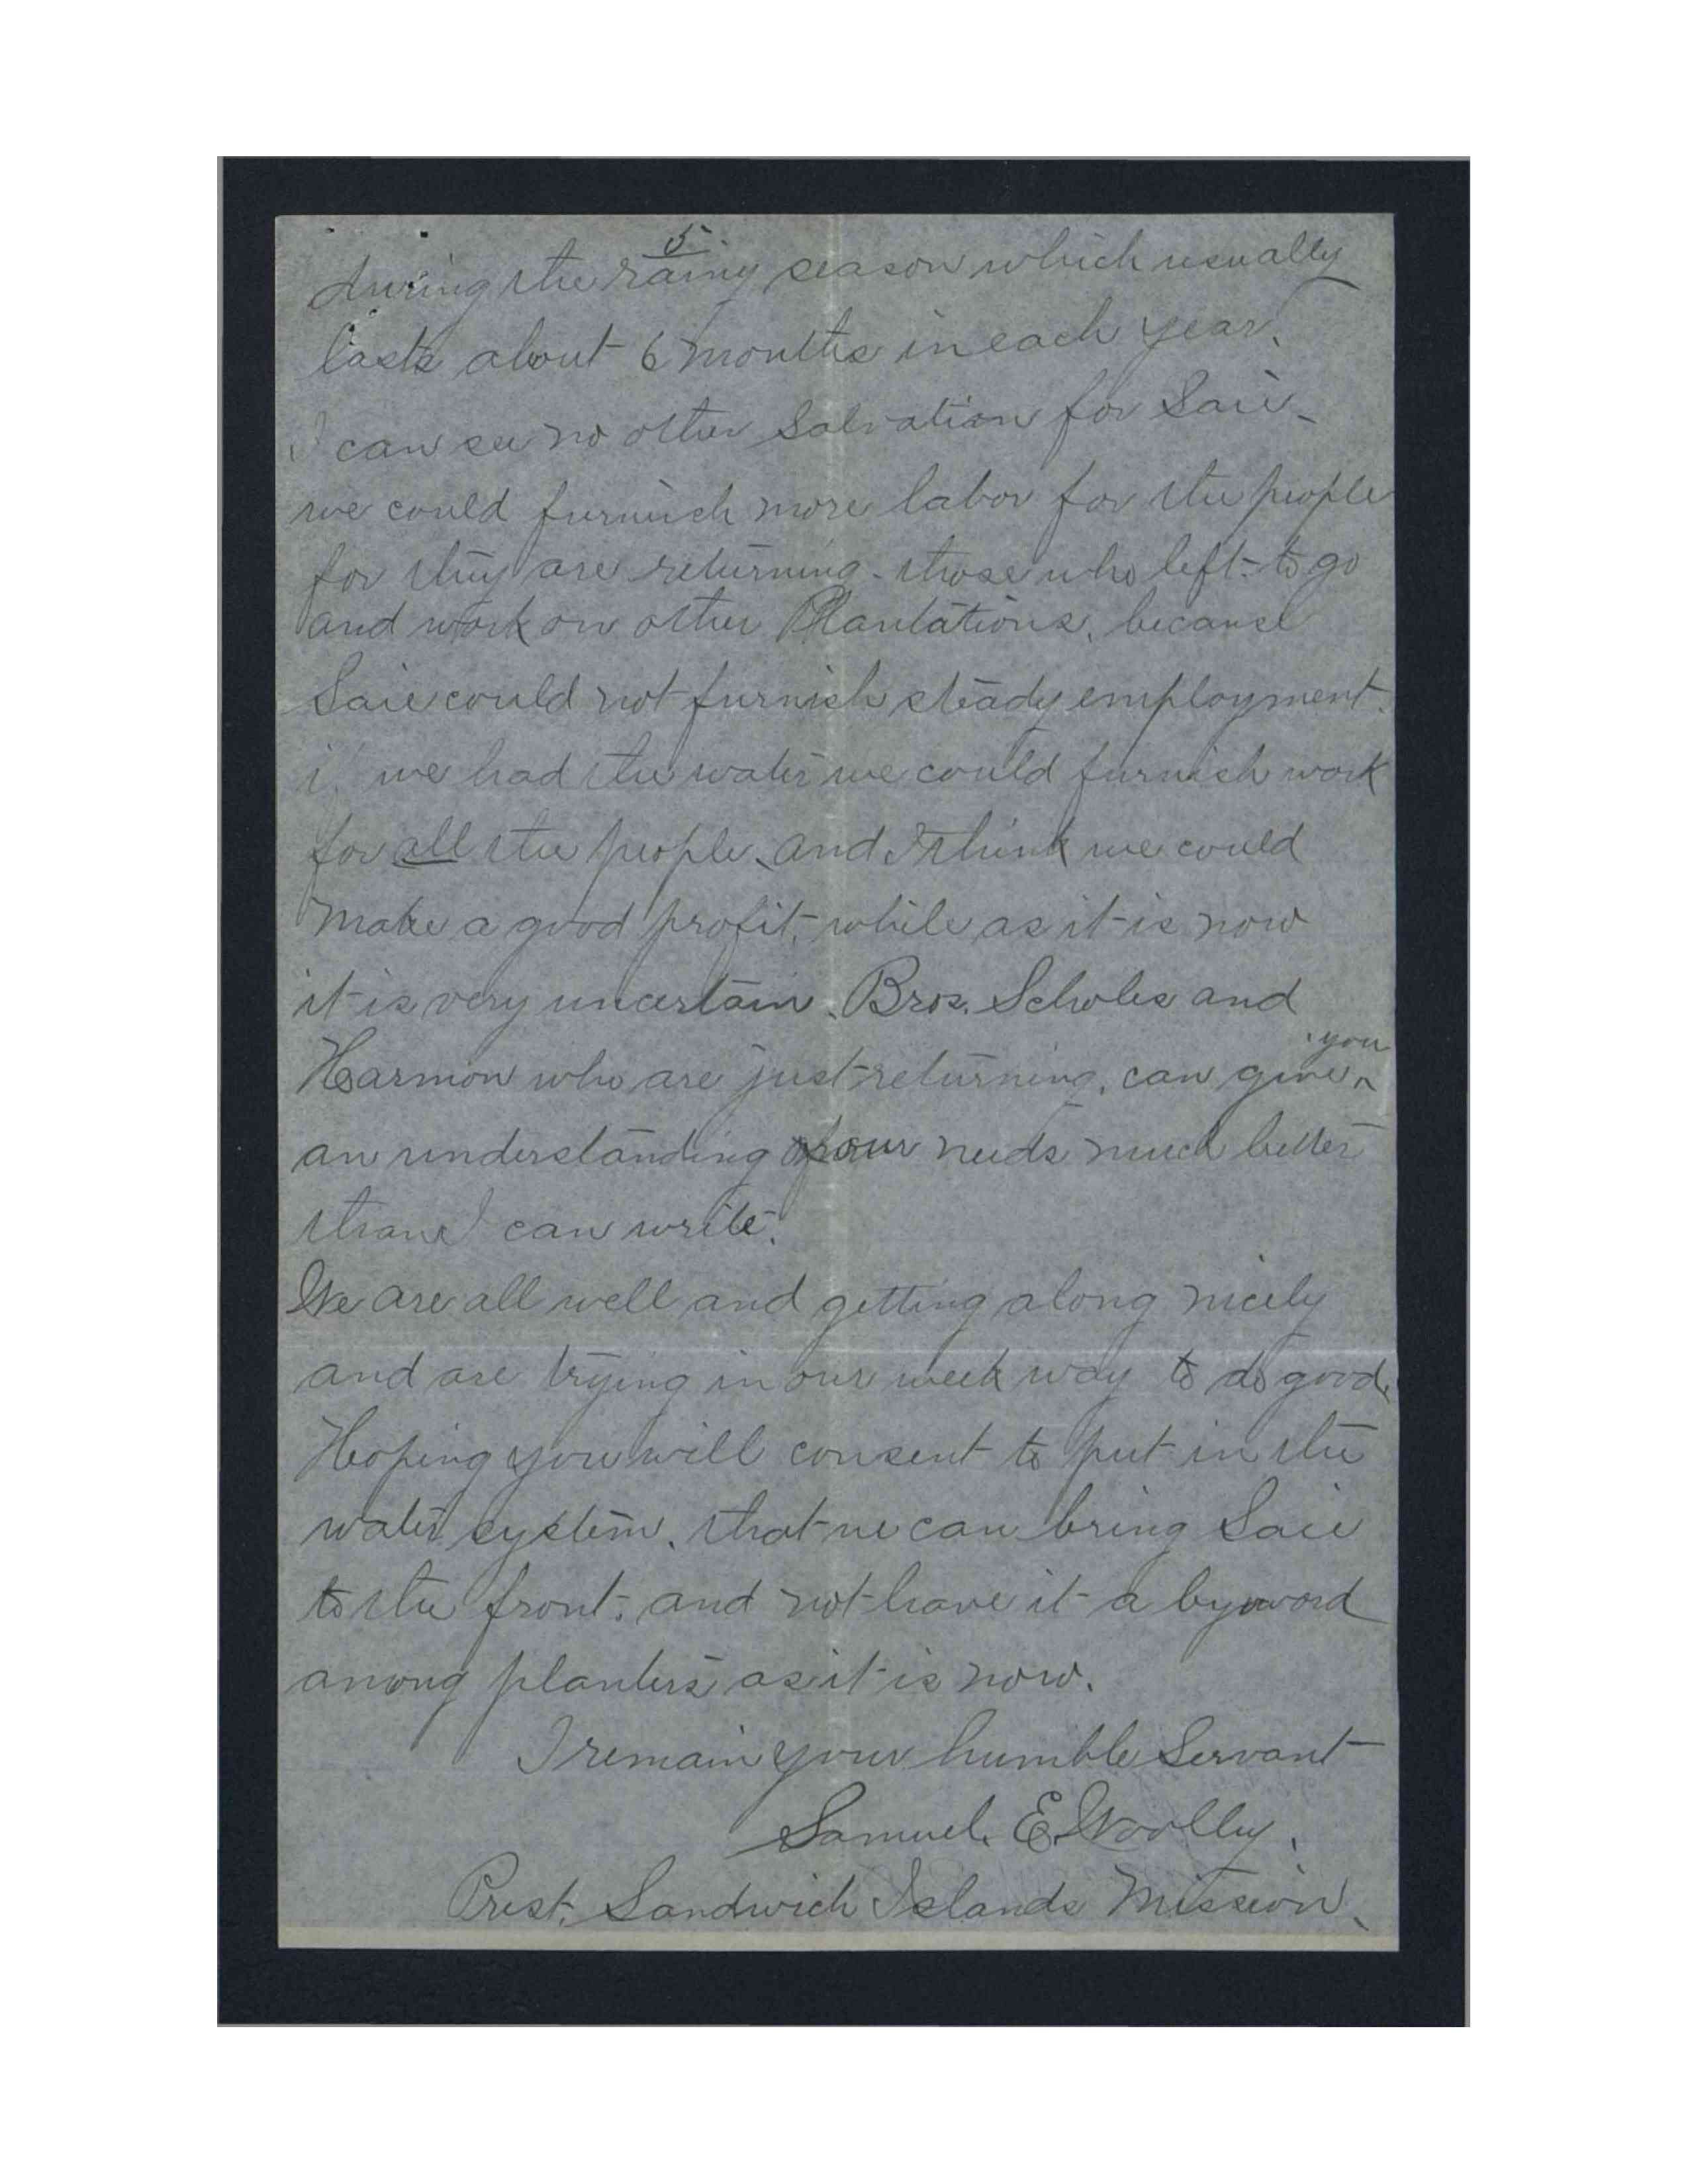 5.
during the rainy season which usually
lasts about 6 months in each year.
I can see no other Salvation for Laie.
we could furnish more labor for the people
for they are returning. those who left to go
and work on other Plantations, because
Laie could not furnish steady employment.
if we had the water we could furnish work
for all the people, and I think we could
make a good profit, while as it is now
it is very uncertain. Bros. Scholes and
Harmon who are just returning, can give you
an understanding of our needs much better
than I can write.
We are all well and getting along nicely
and are trying in our week way to do good.
Hoping you will consent to put in the
water system, that we can bring Laie
to the front, and not have it a byword
among planters as it is now.
I remain your humble Servant
Samuel E. Woolley.
Prest. Sandwich Islands Mission.